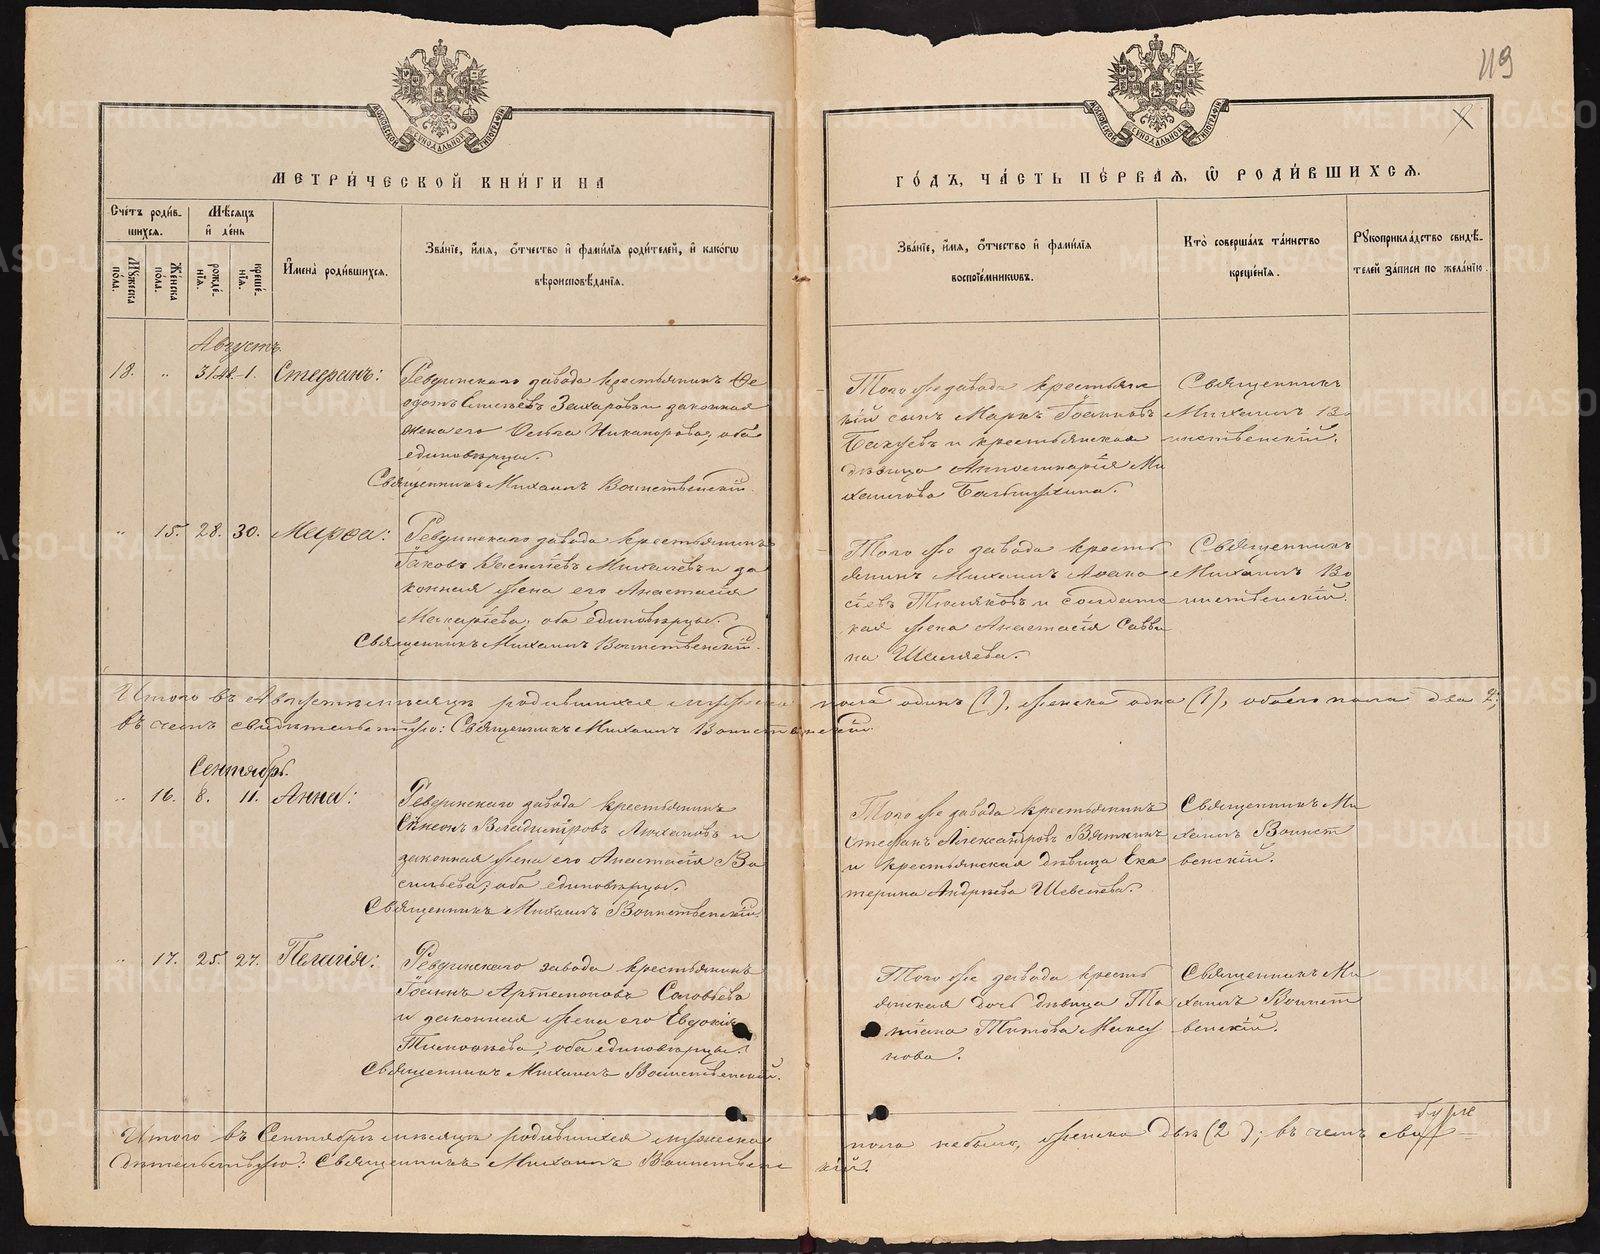 119
МЕТРИ́ЧЕСКОЙ КНИ́ГИ НА
ГО́ДЪ, ЧА́СТЬ ПЕ́РВАЯ, Ѿ РОДИ́ВШИХСЯ.
Сче́тъ роди́в-
шихся.
Му́жеска
по́ла.
Же́нска
по́ла.
Мѣ́сяцъ
и҆ де́нь
рожде́-
нїя.
креще́-
нїя.
И҆мена̀ роди́вшихся.
Зва́нїе, и҆́мя, ѻ҆́тчество и҆ фами́лїя роди́телей, и҆ како́гѡ
вѣроисповѣ́данїя.
Зва́нїе, и҆́мя, ѻ҆́тчество и҆ фами́лїя
воспрїе́мникѡвъ.
Кто̀ соверша́лъ та́инство
креще́нїя.
Рꙋкоприкла́дство свидѣ́-
телей за́писи по жела́нїю.
Августъ
18. " 31 1. Стефанъ:
Ревдинскаго завода крестьянинъ Ѳе
дотъ Захаровъ и законная
жена его Ольга Никанорова, оба
единовѣрцы.
Священникъ Михаилъ Воинственскій.
Того же завода крестьян
скій сынъ Маркъ Іоанновъ
и крестьянская
дѣвица Апполинарія Ми
хаилова
Священникъ
Михаилъ Во
инственскій.
" 15. 28. 30. Марѳа:
Ревдинскаго завода крестьянинъ
Іаковъ и за
конная жена его Анастасія
Макаріева, оба единовѣрцы.
Священникъ Михаилъ Воинственскій.
Того же завода кресть
янинъ Михаилъ Аѳана
сіевъ и солдатс
кая жена Анастасія Савви
на
Священникъ
Михаилъ Во
инственскій.
Итого въ Августѣ мѣсяцѣ родившихся мужеска пола одинъ (1), женска одна (1), обоего пола два 2;
въ чемъ свидѣтельствую: Священникъ Михаилъ Воинственскій.
Сентябрь.
" 16. 8. 11. Анна:
Ревдинскаго завода крестьянинъ
Сѵмеонъ Владиміровъ и
законная жена его Анастасія Ва
сильева, оба единовѣрцы.
Священникъ Михаилъ Воинственскій.
Того же завода крестьянинъ
Стефанъ Александровъ Вяткинъ
и крестьянская дѣвица Ека
терина Андреева
Священникъ Ми
хаилъ Воинст
венскій.
" 17. 25. 27. Пелагія:
Ревдинскаго завода крестьянинъ
Іоаннъ Артемоновъ Соловьевъ
и законная жена его Евдокія
Тимоѳеева, оба единовѣрцы.
Священникъ Михаилъ Воинственскій.
Того же завода кресть
янская дочь дѣвица Та
тіана Титова
нова.
Священникъ Ми
хаилъ Воинст
венскій.
Итого въ Сентябрѣ мѣсяцѣ родившихся мужеска пола небыло, женска двѣ (2); въ чемъ сви
дѣтельствую: Священникъ Михаилъ Воинственскій.